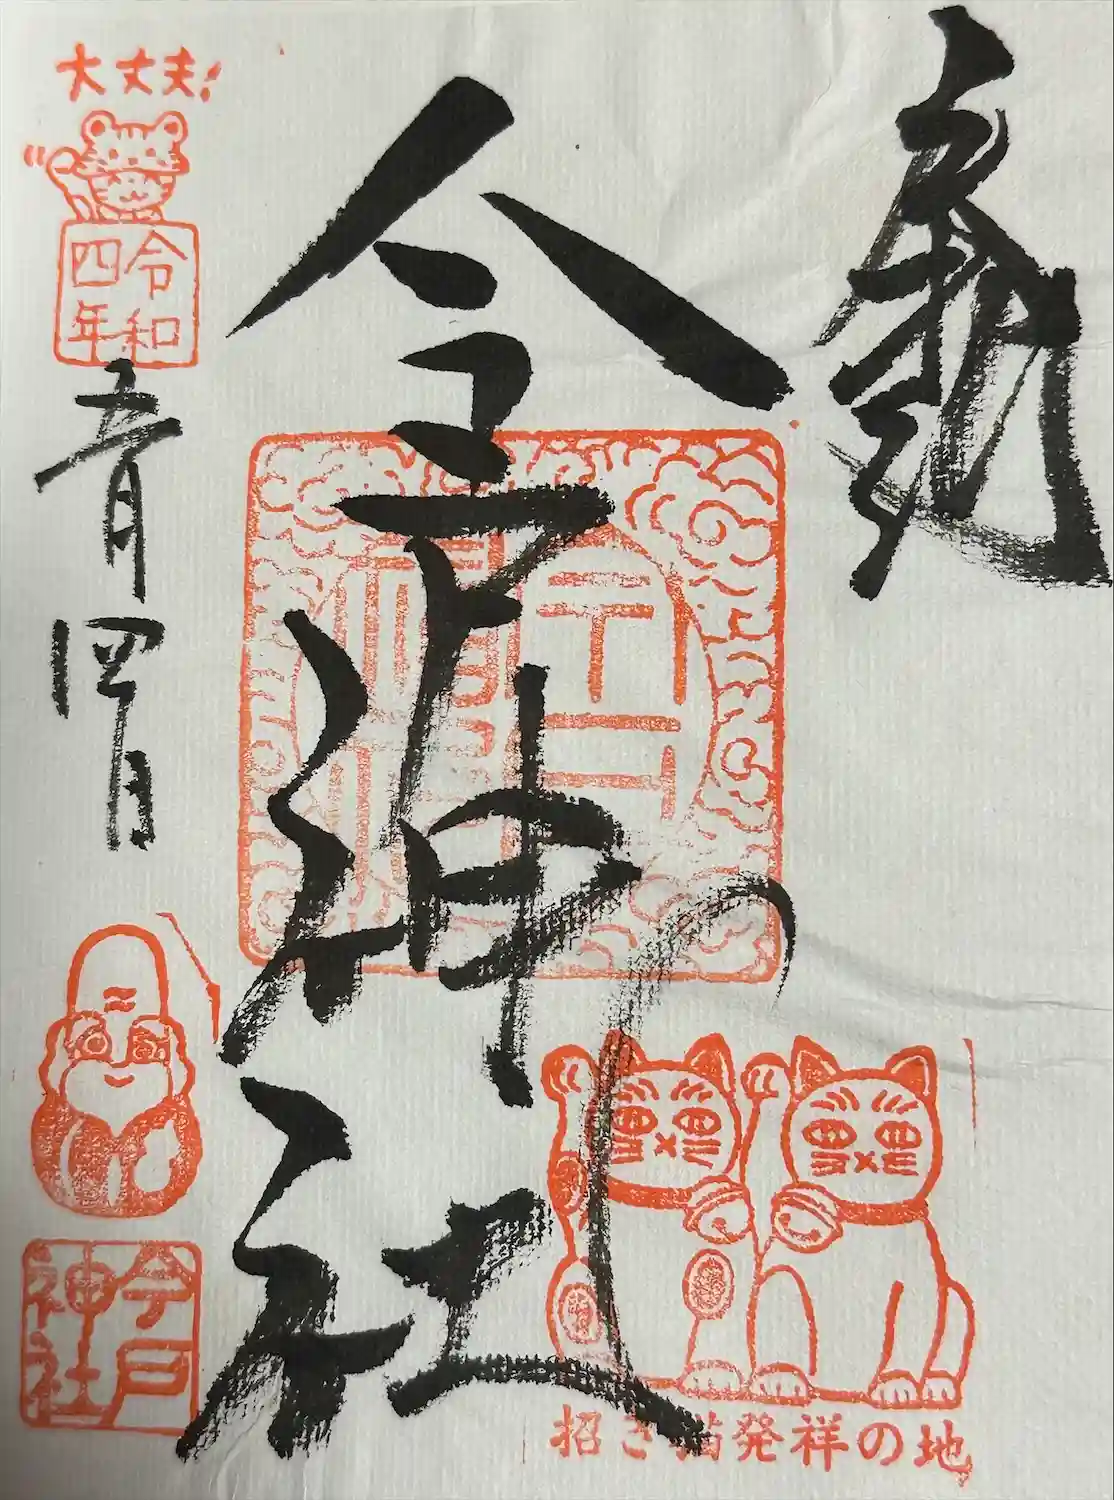 今戸神社
招き猫発祥の地
大丈夫!
令和
四年
五月四日
今戸
神社